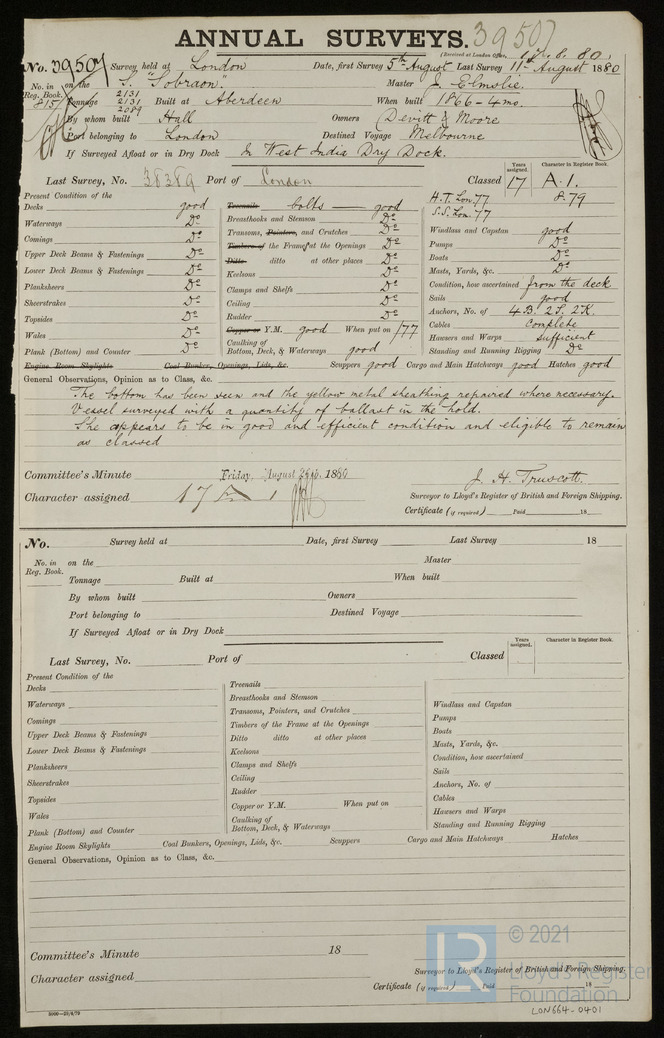 ANNUAL SURVEYS. 39507
(Received at London Office,
No. 39507 Survey held at London Date, first Survey 5th August Last Survey 11th August 1880
No. in Reg. Book. 815 on the S. "Sobraon". Master J. Elmslie.
Tonnage 2131 2131 2089 Built at Aberdeen When built 1866 - 4mo.
By whom built Hall Owners Devitt & Moore
Port belonging to London Destined Voyage Melbourne
If Surveyed Afloat or in Dry Dock In West India Dry Dock.
Last Survey, No. 38389 Port of London Classed Years assigned. 17 Character in Register Book. A.1.
H.T. Lon. 77 8.79
S.S. Lon. 77
Present Condition of the
Decks good
Waterways Do
Comings Do
Upper Deck Beams & Fastenings Do
Lower Deck Beams & Fastenings Do
Planksheers Do
Sheerstrakes Do
Topsides Do
Wales Do
Plank (Bottom) and Counter Do
Treenails bolts good
Breasthooks and Stemson Do
Transoms, Pointers, and Crutches Do
Timbers of the Frame at the Openings Do
Ditto ditto at other places Do
Keelsons Do
Clamps and Shelfs Do
Ceiling Do
Rudder Do
Copper or Y.M. good When put on /77
Caulking of Bottom, Deck, & Waterways good
Windlass and Capstan good
Pumps Do
Boats Do
Masts, Yards, &c. Do
Condition, how ascertained from the deck
Sails good
Anchors, No. of 4B. 2S. 2K.
Cables Complete
Hawsers and Warps Sufficient
Standing and Running Rigging Do
Engine Room Skylights Coal Bunkers, Openings, Lids, &c. Scuppers good Cargo and Main Hatchways good Hatches good
General Observations, Opinion as to Class, &c.
The bottom has been seen and the yellow metal sheathing repaired where necessary.
Vessel surveyed with a quantity of ballast in the hold.
She appears to be in good and efficient condition and eligible to remain
as classed
Committee's Minute Friday, August 1880 J. H. Truscott.
Character assigned 17 A 1 Surveyor to Lloyd's Register of British and Foreign Shipping.
Certificate (if required) Paid 18
No. Survey held at Date, first Survey Last Survey 18
No. in Reg. Book. on the Master
Tonnage Built at When built
By whom built Owners
Port belonging to Destined Voyage
If Surveyed Afloat or in Dry Dock
Last Survey, No. Port of Classed Years assigned. Character in Register Book.
Present Condition of the
Decks
Waterways
Comings
Upper Deck Beams & Fastenings
Lower Deck Beams & Fastenings
Planksheers
Sheerstrakes
Topsides
Wales
Plank (Bottom) and Counter
Treenails
Breasthooks and Stemson
Transoms, Pointers, and Crutches
Timbers of the Frame at the Openings
Ditto ditto at other places
Keelsons
Clamps and Shelfs
Ceiling
Rudder
Copper or Y.M. When put on
Caulking of Bottom, Deck, & Waterways
Windlass and Capstan
Pumps
Boats
Masts, Yards, &c.
Condition, how ascertained
Sails
Anchors, No. of
Cables
Hawsers and Warps
Standing and Running Rigging
Engine Room Skylights Coal Bunkers, Openings, Lids, &c. Scuppers Cargo and Main Hatchways Hatches
General Observations, Opinion as to Class, &c.
Committee's Minute 18
Character assigned Surveyor to Lloyd's Register of British and Foreign Shipping.
Certificate (if required) Paid 18
LR © 2021
Lloyd's Register
Foundation
LON664-0401